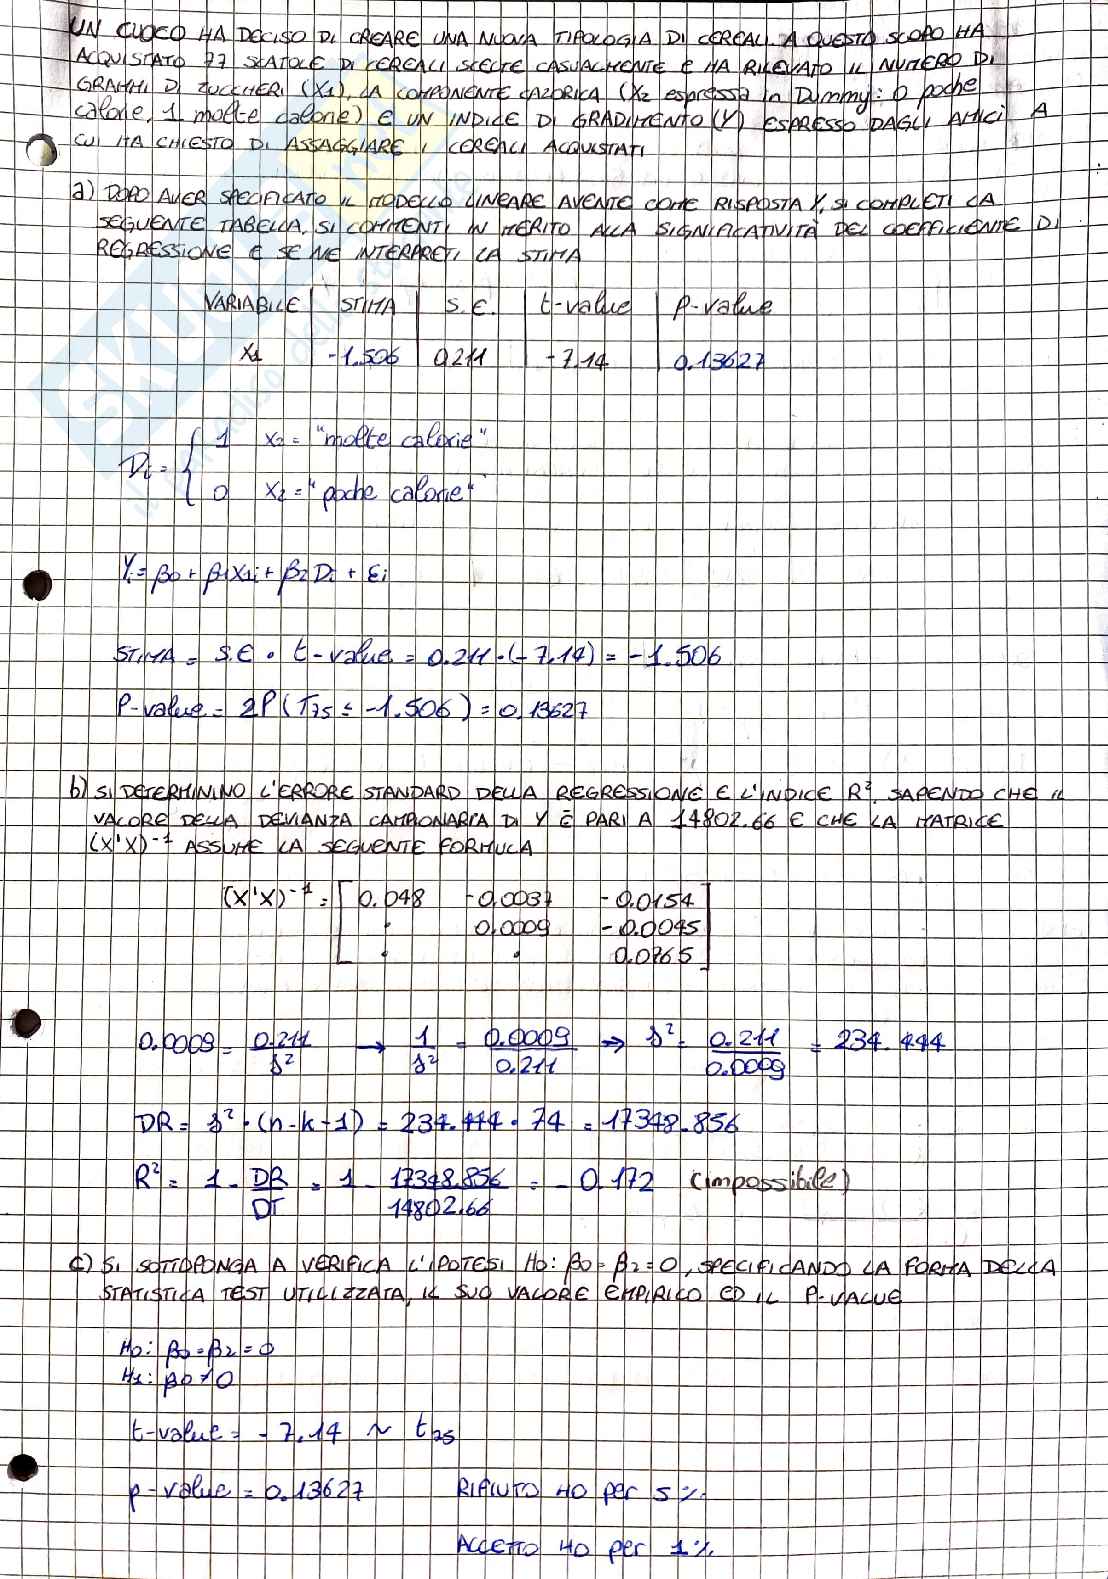 UN CUOCO HA DECISO DI CREARE UNA NUOVA TIPOLOGIA DI CEREALI. A QUESTO SCOPO HA
ACQUISTATO 77 SCATOLE DI CEREALI SCELTE CASUALMENTE E HA RILEVATO IL NUMERO DI
GRAMMI DI ZUCCHERI (X1), LA COMPONENTE CALORICA (X2 espressa in Dummy: 0 poche
calorie, 1 molte calorie) E UN INDICE DI GRADIMENTO (Y) ESPRESSO DAGLI AMICI A
CUI HA CHIESTO DI ASSAGGIARE I CEREALI ACQUISTATI
a) DOPO AVER SPECIFICATO IL MODELLO LINEARE AVENTE COME RISPOSTA Y, SI COMPLETI LA
SEGUENTE TABELLA, SI COMMENTI IN MERITO ALLA SIGNIFICATIVITÀ DEL COEFFICIENTE DI
REGRESSIONE E SE NE INTERPRETI LA STIMA
VARIABILE STIMA S.E. t-value p-value
X1 -1.506 0.211 -7.14 0.13627
Di = { 1 X2 = "molte calorie"
0 X2 = "poche calorie"
Yi = β0 + β1X1i + β2Di + εi
STIMA = S.E • t-value = 0.211·(-7.14) = -1.506
P-value = 2P(T75 ≤ -1.506) = 0.13627
b) SI DETERMININO L'ERRORE STANDARD DELLA REGRESSIONE E L'INDICE R². SAPENDO CHE IL
VALORE DELLA DEVIANZA CAMPIONARIA DI Y È PARI A 14802.66 E CHE LA MATRICE
(X'X)⁻¹ ASSUME LA SEGUENTE FORMULA
(X'X)⁻¹ = [ 0.048 -0.0037 -0.0154 ]
. 0.0009 -0.0045
. . 0.0765
0.0009 = 0.211/s² → 1/s² = 0.0009/0.211 → s² = 0.211/0.0009 = 234.444
DR = s² · (n-k-1) = 234.444 · 74 = 17348.856
R² = 1 - DR/DT = 1 - 17348.856/14802.66 = -0.172 (impossibile)
c) SI SOTTOPONGA A VERIFICA L'IPOTESI H0: β0 = β2 = 0, SPECIFICANDO LA FORMA DELLA
STATISTICA TEST UTILIZZATA, IL SUO VALORE EMPIRICO ED IL P-VALUE
H0: β0 = β2 = 0
H1: β0 ≠ 0
t-value = -7.14 ~ t75
p-value = 0.13627 RIFIUTO H0 per 5%
ACCETTO H0 per 1%